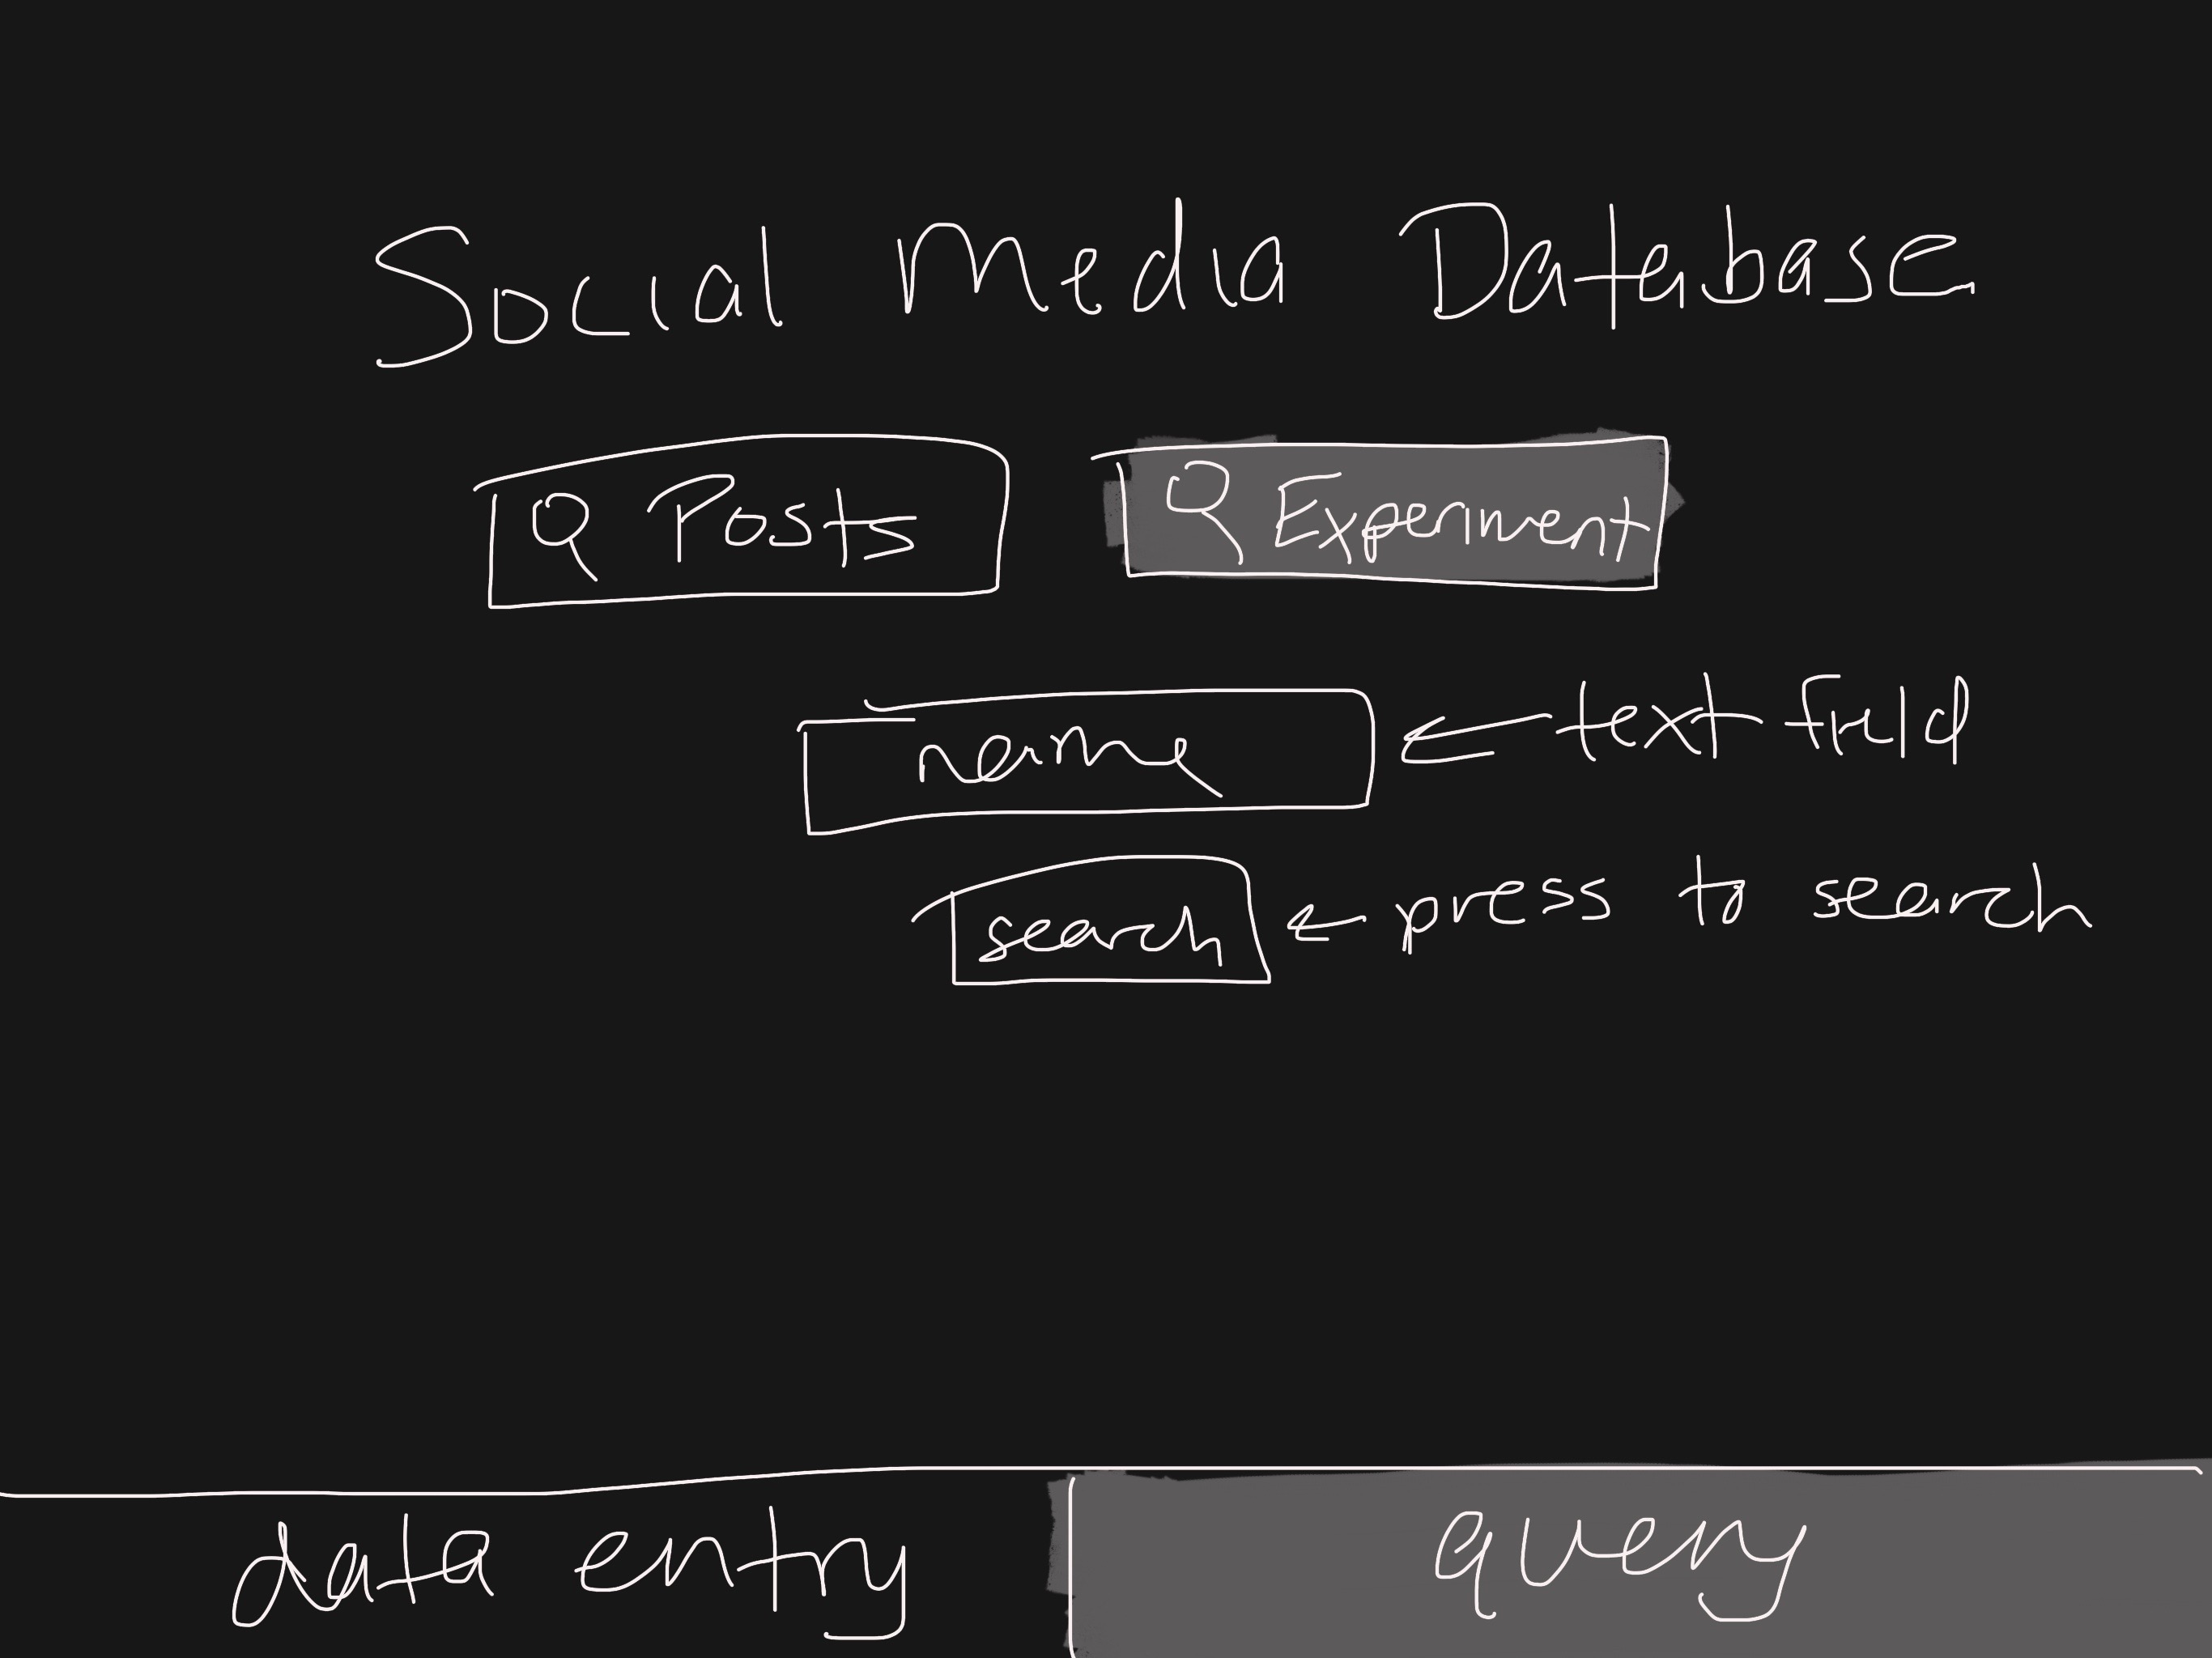 Social Media Database
Q Posts
Q Experiment
name
← text field
search
← press to search
data entry
query